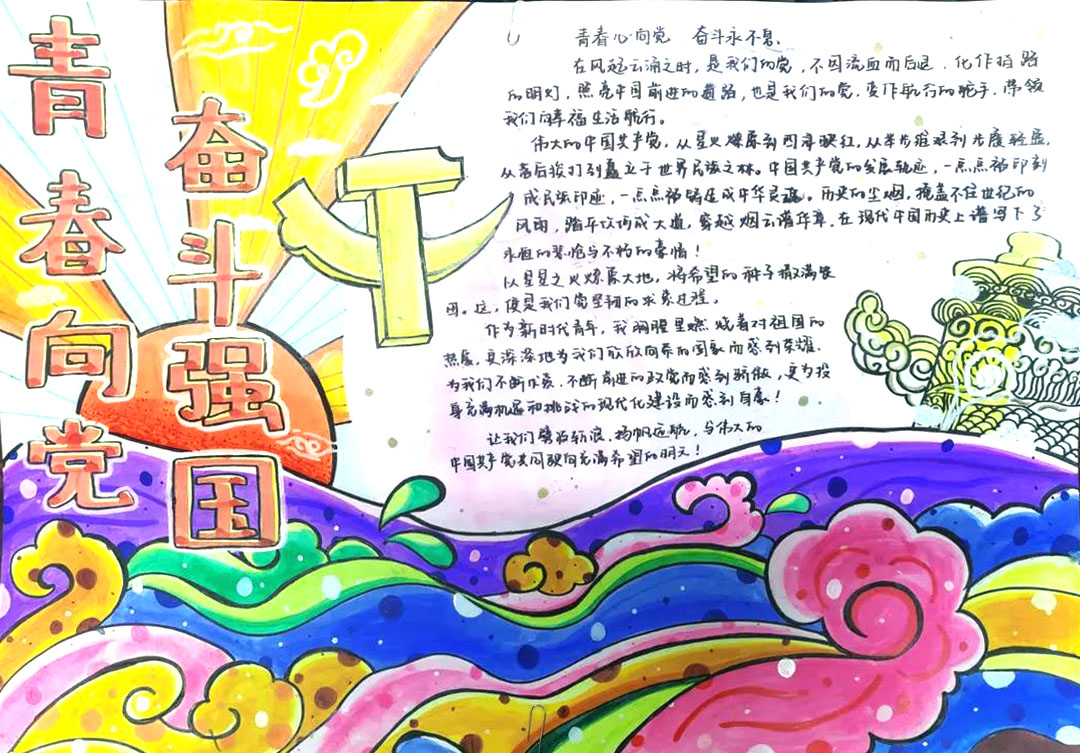 青春向党
奋斗强国
青春心向党 奋斗永不息.
在风起云涌之时,是我们的党,不因流血而后退,化作指路
的明灯,照亮中国前进的道路,也是我们的党,变作航行的舵手,带领
我们向幸福生活航行。
伟大的中国共产党,从星火燎原到四海映红,从举步维艰到步履轻盈,
从落后挨打到矗立于世界民族之林。中国共产党的发展轨迹,一点点被印刻
成民族印迹,一点点被铸造成中华灵魂。历史的尘烟,掩盖不住世纪的
风雨,踏平坎坷成大道,穿越烟云谱华章.在现代中国历史上谱写下了
永恒的悲怆与不朽的豪情!
从星星之火燎原大地,将希望的种子撒满
田。这,便是我们党坚韧的求索过程。
作为新时代青年,我胸腔里燃烧着对祖国的
热爱.更深深地为我们欣欣向荣的国家而感到荣耀.
为我们不断求索.不断前进的政党而感到骄傲,更为投
身充满机遇和挑战的现代化建设而感到自豪!
让我们劈波斩浪.扬帆远航,与伟大的
中国共产党共同驶向充满希望的明天!